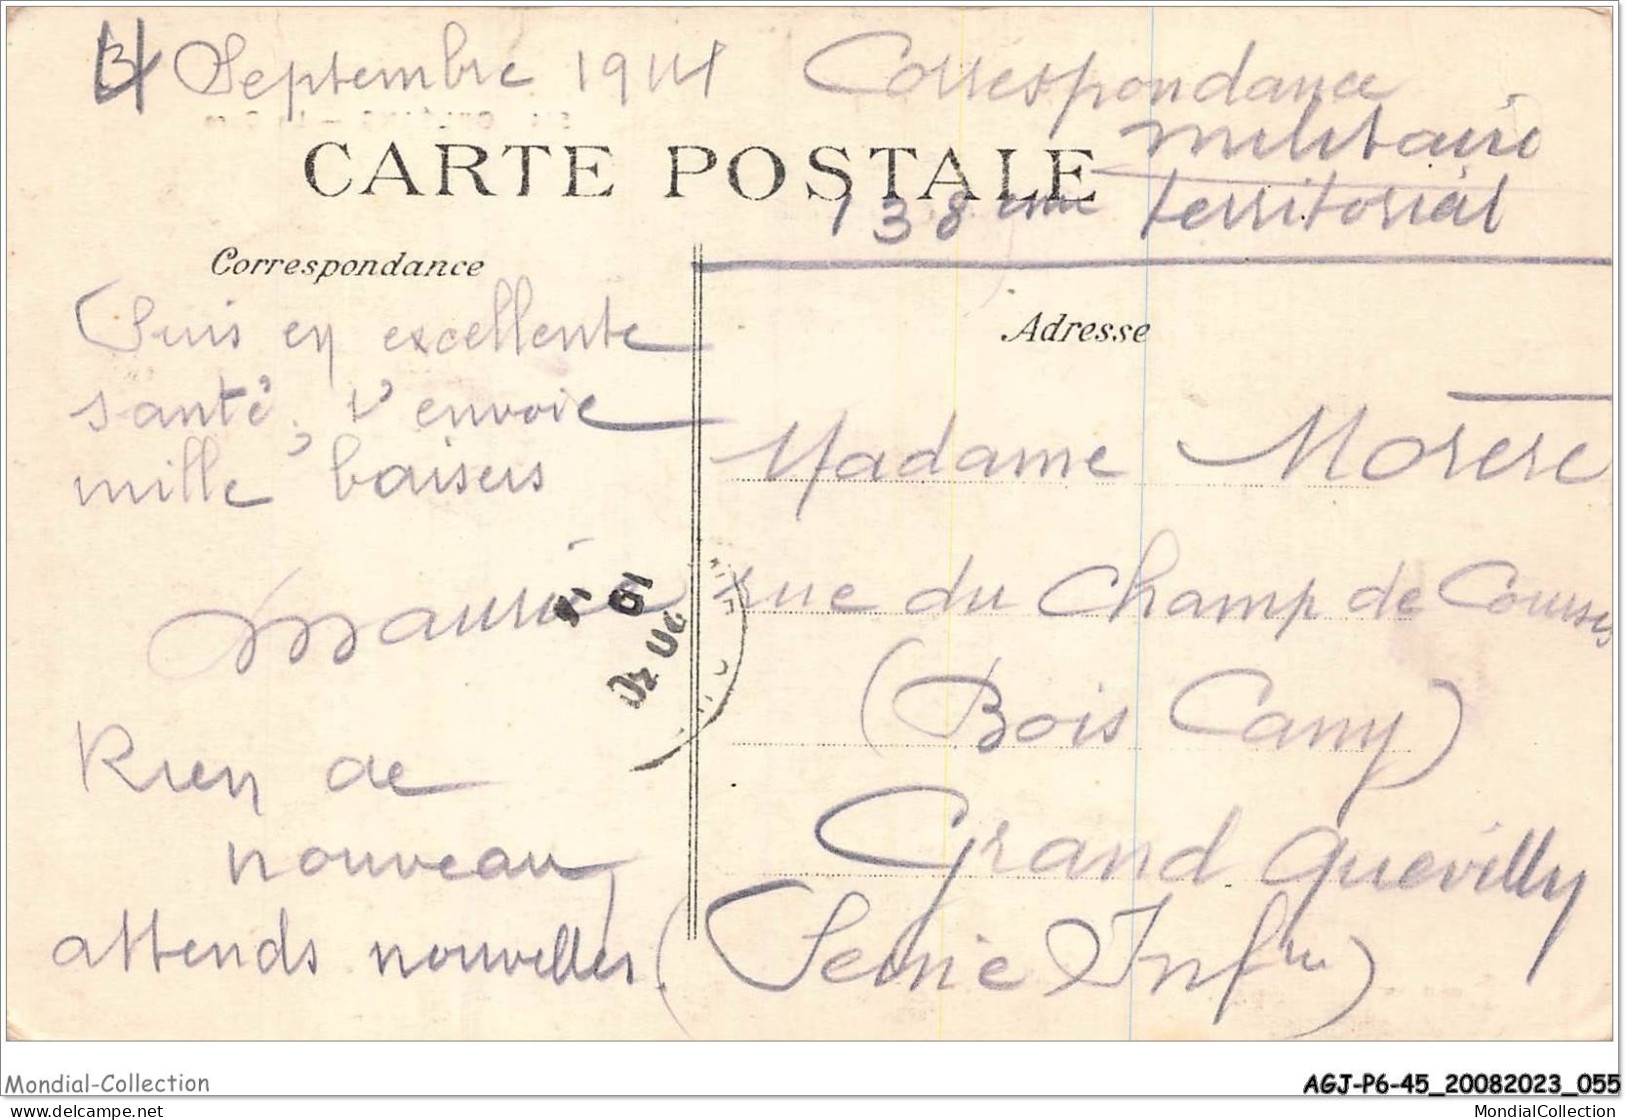 Septembre 1914
Correspondance
militaire
138eme territorial
CARTE POSTALE
Correspondance
Adresse
Suis en excellente
santé, t'envoie
mille baisers
Maurice
Rien de
nouveau,
attends nouvelles.
Madame Morere
rue du Champ de Courses
(Bois Cany)
Grand Quevilly
(Seine Infre)
Mondial-Collection
AGJ-P6-45_20082023_055
delcampe.net
MondialCollection